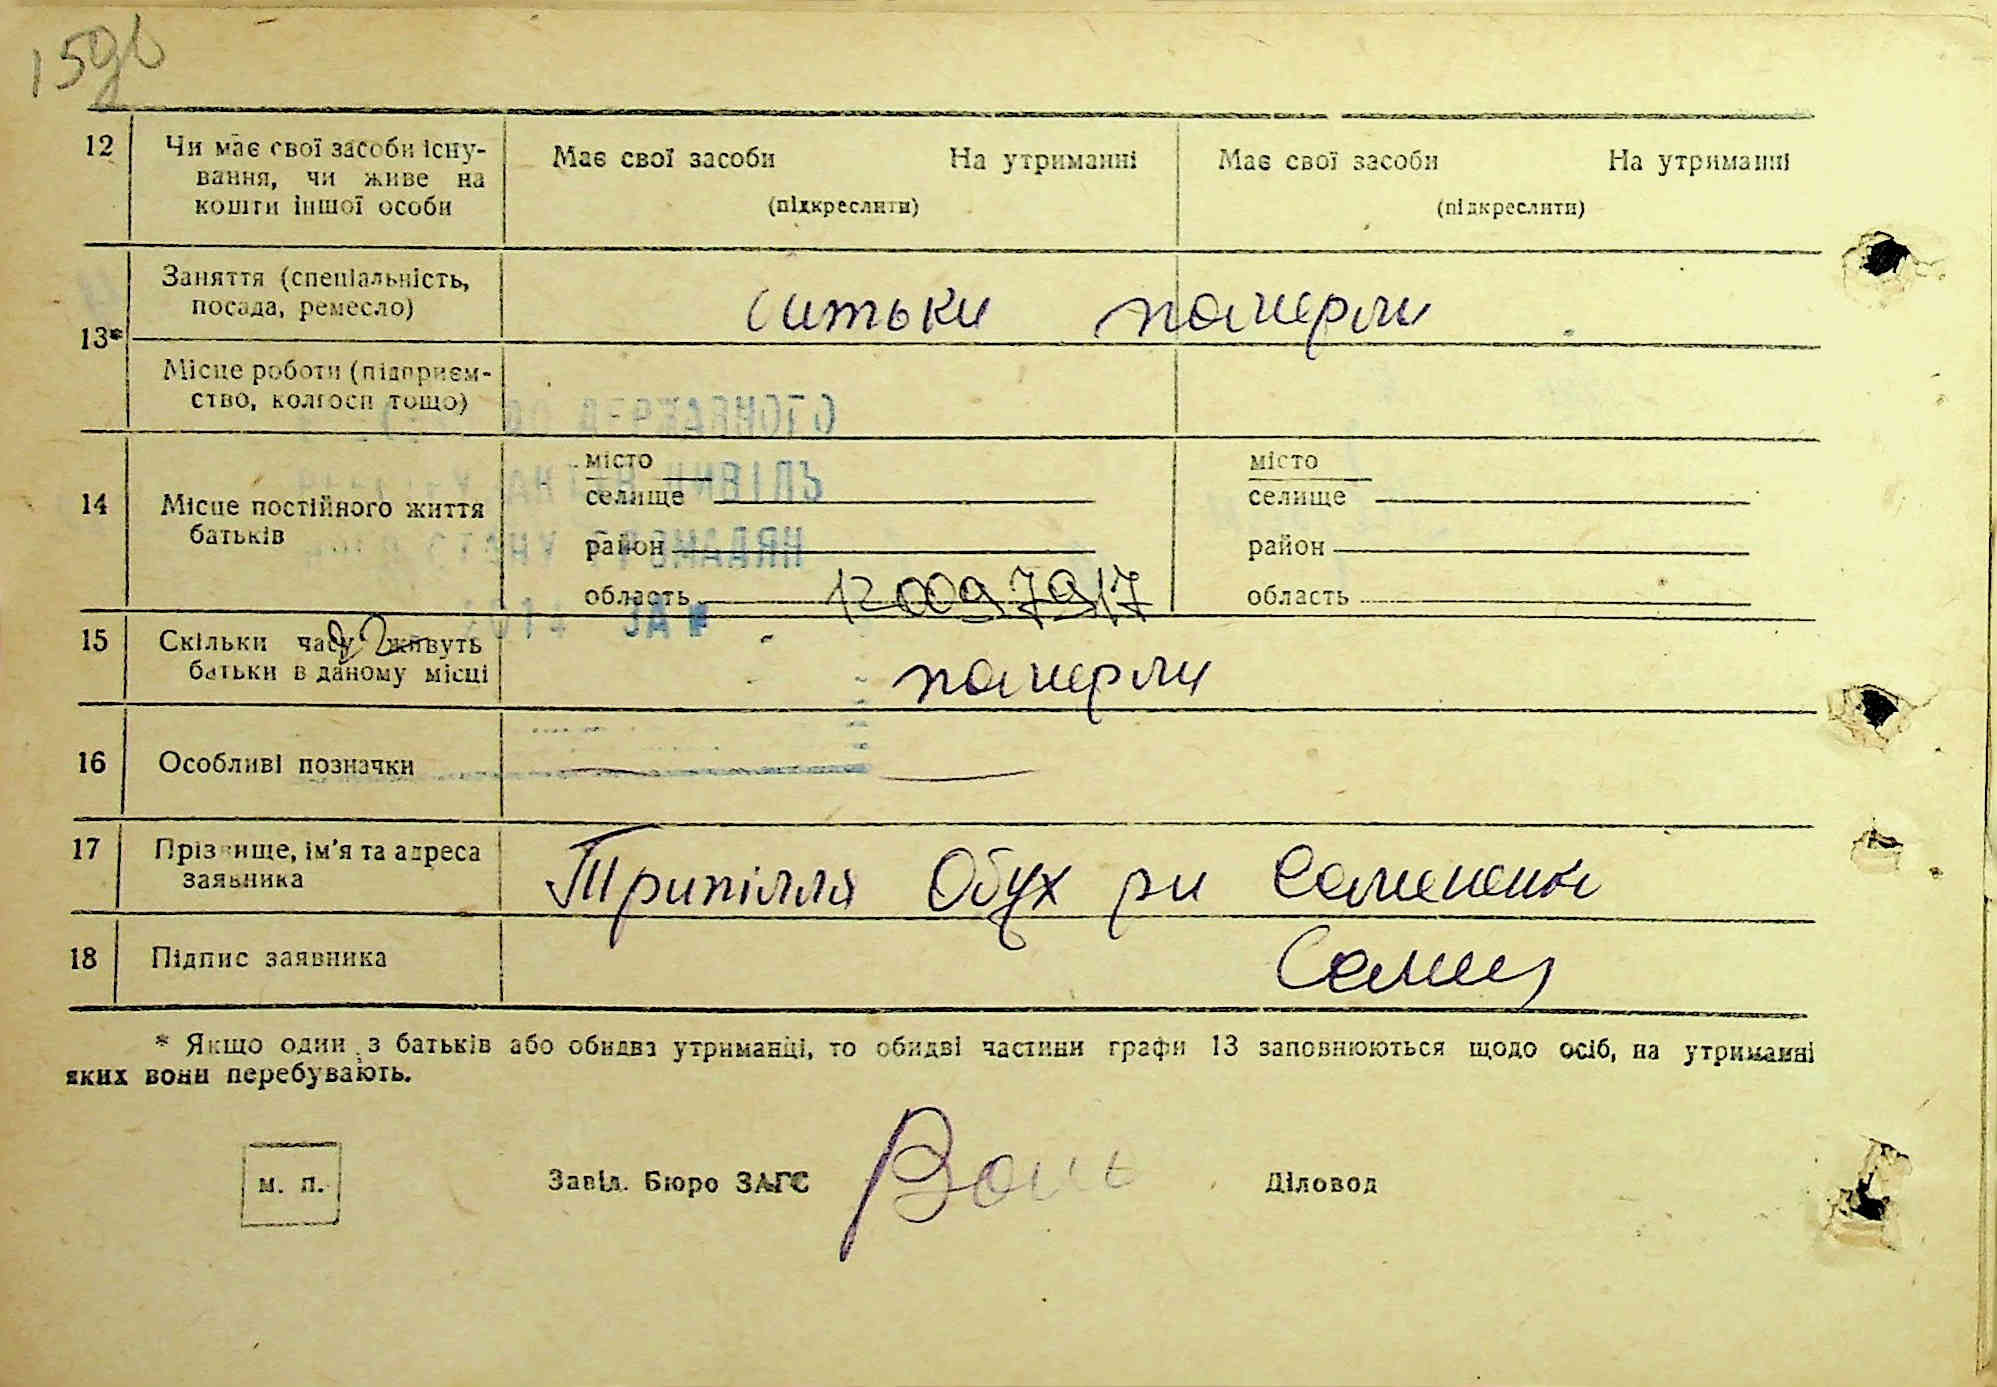 12 Чи має свої засоби існу- Має свої засоби На утриманні Має свої засоби На утриманні
вання, чи живе на
кошти іншої особи (підкреслити) (підкреслити)
13* Заняття (спеціальність,
посада, ремесло) померли
Місце роботи (підприєм-
ство, колгосп тощо)
14 Місце постійного життя
батьків
місто
селище
район
область 120097917
місто
селище
район
область
15 Скільки часу живуть
батьки в даному місці померли
16 Особливі позначки
17 Прізвище, ім'я та адреса
заявника Трипілля Обух
18 Підпис заявника
* Якщо один з батьків або обидва утриманці, то обидві частини графи 13 заповнюються щодо осіб, на утриманні
яких вони перебувають.
м. п. Завід. Бюро ЗАГС Діловод